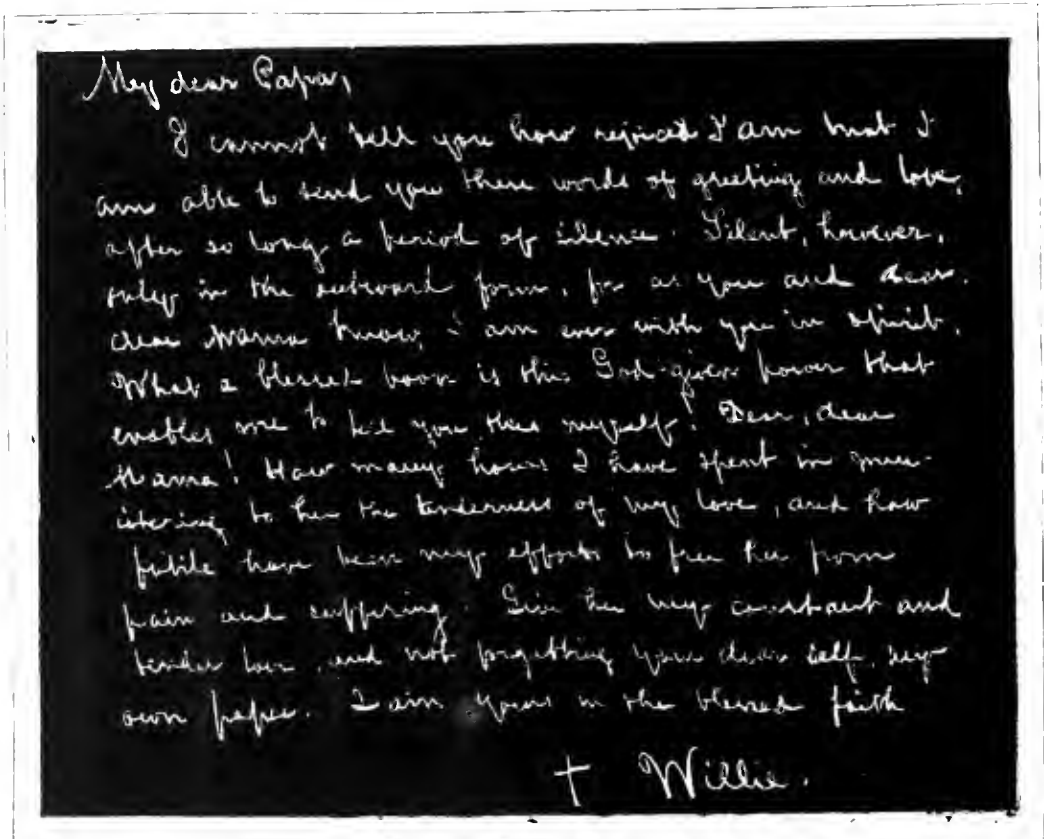 My dear Papa,
I cannot tell you how rejoiced I am that I
am able to send you these words of greeting and love,
after so long a period of silence. Silent, however,
only in the outward form, for as you and dear,
dear Mama know, I am ever with you in spirit.
What a blessed boon is this God-given power that
enables me to bid you thus myself! Dear, dear
Mama! How many hours I have spent in min-
istering to her the tenderness of my love, and how
futile have been my efforts to free her from
pain and suffering. Give her my constant and
tender love, and not forgetting your dear self, my
own papa. I am yours in the blessed faith
† Willie.